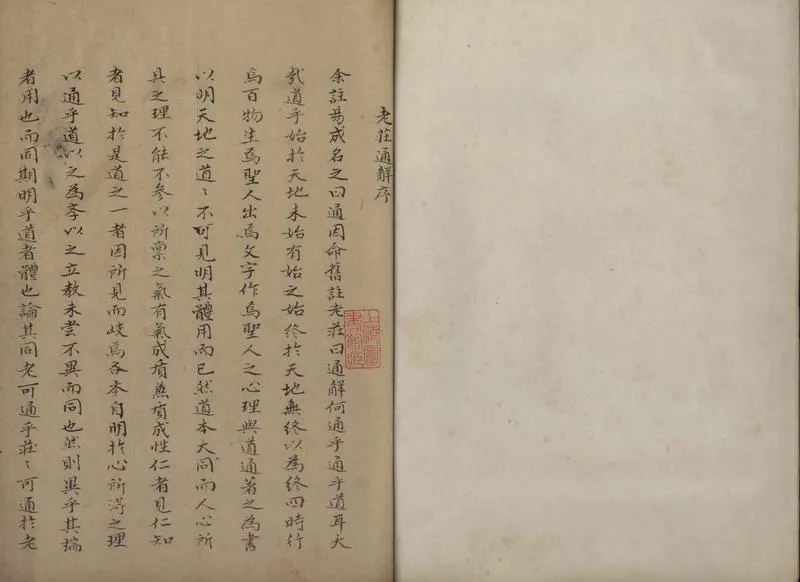 老莊通解序
余註易成名之曰通因命舊註老莊曰通解何通乎通乎道耳大
哉道乎始於天地未始有始之始終於天地無終以為終四時行
焉百物生焉聖人出焉文字作焉聖人之心理與道通著之為書
以明天地之道〻不可見明其體用而已然道本大同而人心所
具之理不能不參以所禀之氣有氣成質蒸質成性仁者見仁知
者見知於是道之一者因所見而歧焉各本自明於心所得之理
以通乎道以之為學以之立教未嘗不異而同也然則異乎其端
者用也而同期明乎道者體也論其同老可通乎莊〻可通於老
上海圖書館藏